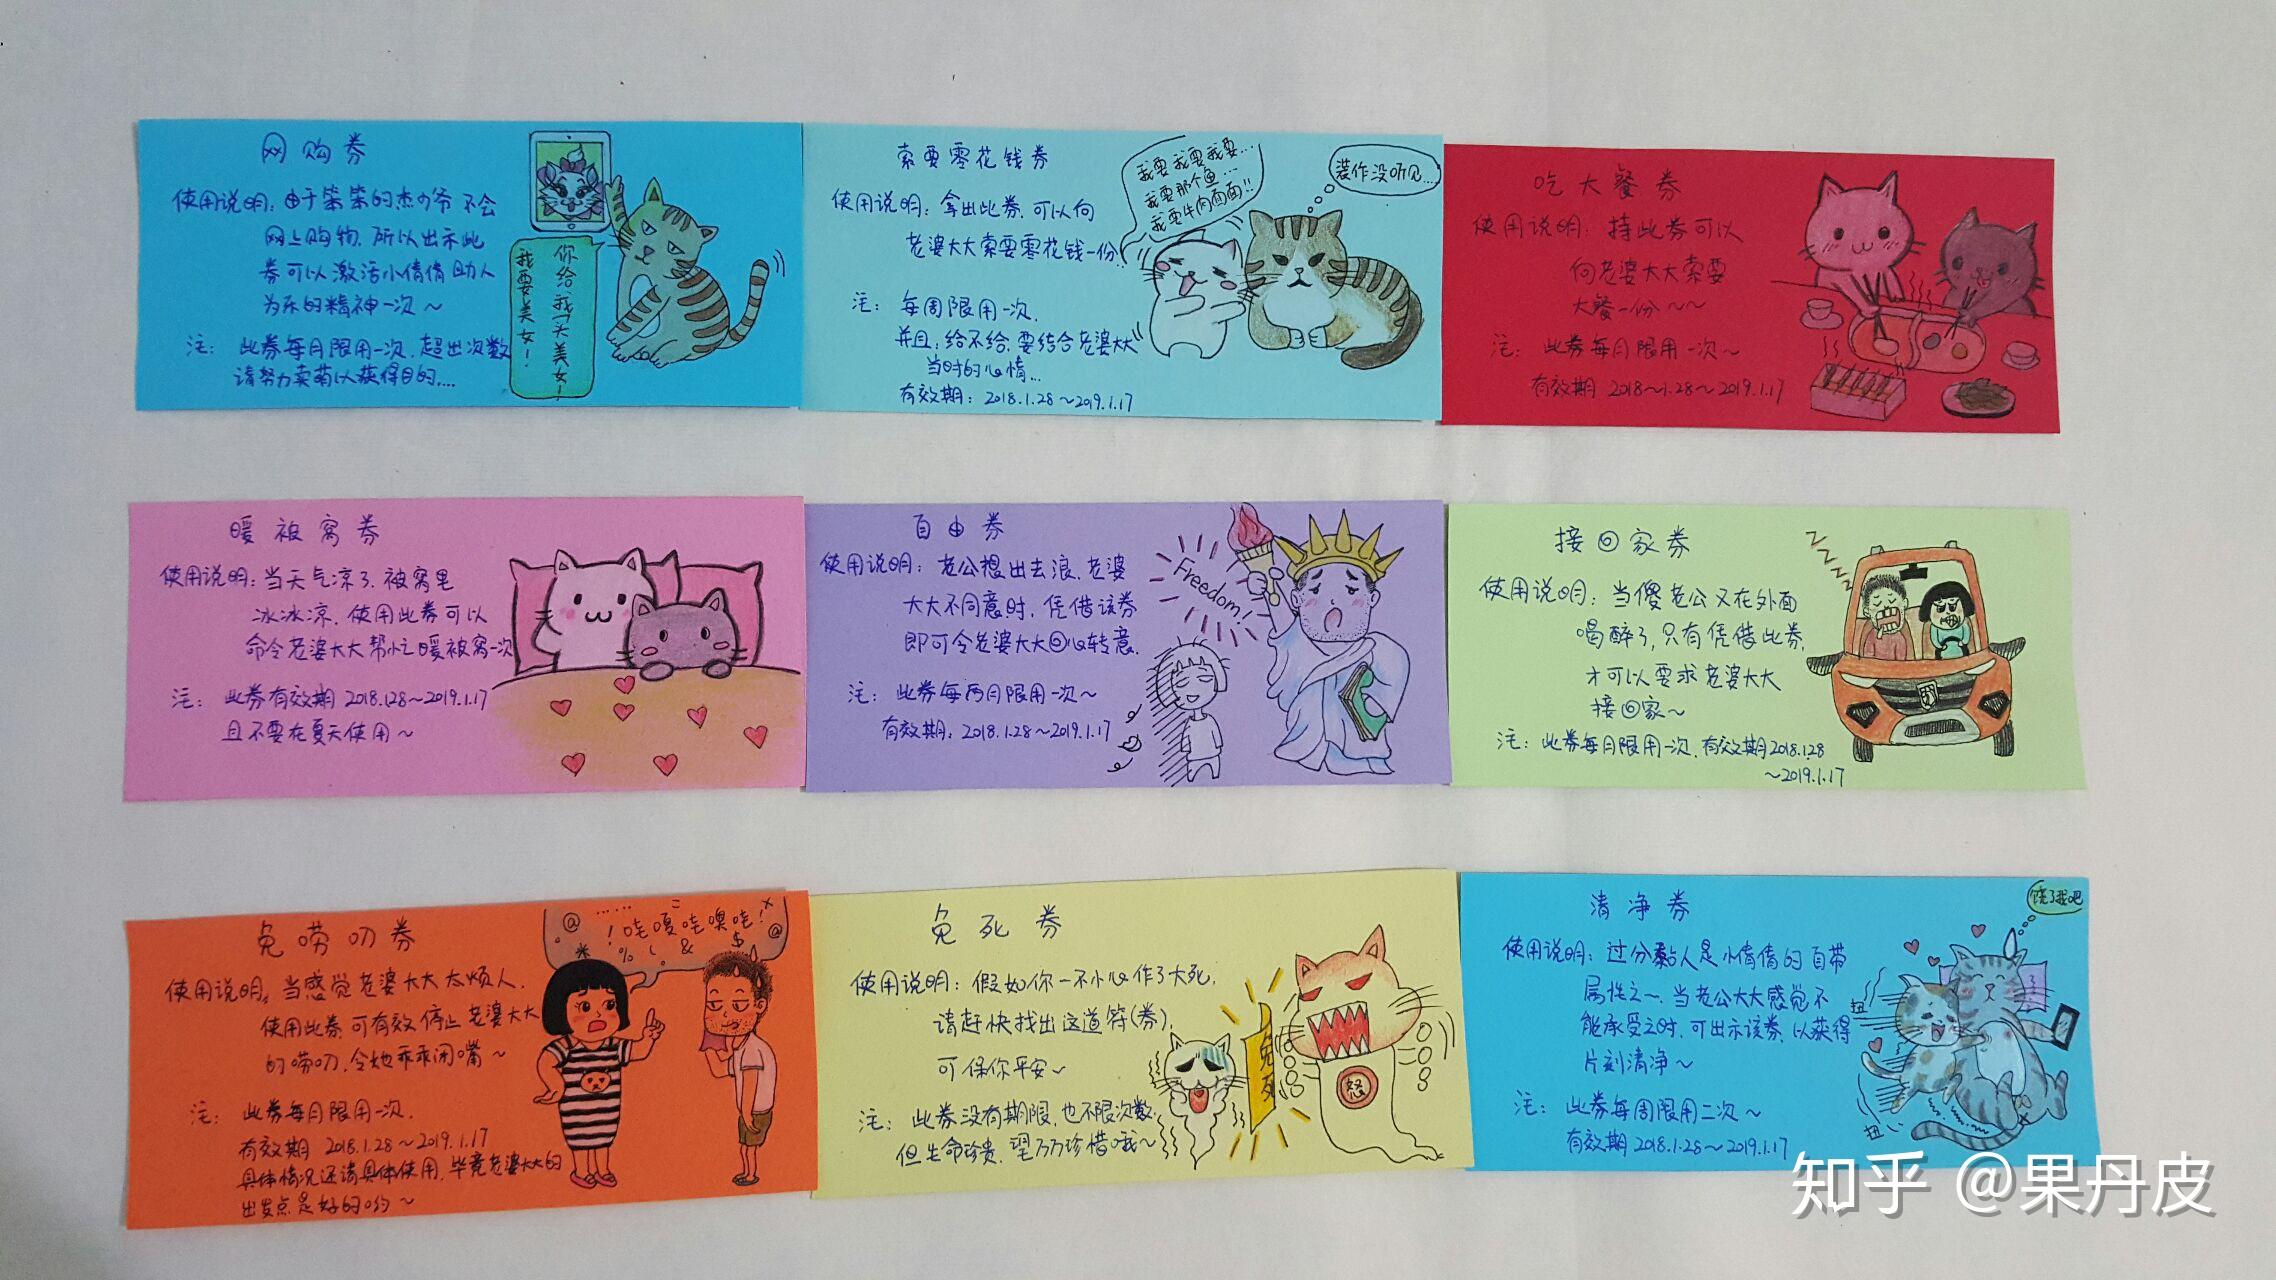 网购券
使用说明：由于笨笨的杰少爷不会
网上购物，所以出示此
券可以激活小倩倩助人
为乐的精神一次～
注：此券每月限用一次，超出次数
请努力卖萌以获得目的...
你给我下头美女！
我要美女！
索要零花钱券
使用说明：拿出此券，可以向
老婆大大索要零花钱一份..
注：每周限用一次，
并且，给不给，要结合老婆大大
当时的心情...
有效期：2018.1.28～2019.1.17
我要我要我要...
我要那个鱼...
我要牛肉面面!!
装作没听见...
吃大餐券
使用说明：持此券可以
向老婆大大索要
大餐一份～～
注：此券每月限用一次～
有效期 2018～1.28～2019.1.17
暖被窝券
使用说明：当天气凉了，被窝里
冰冰凉，使用此券可以
命令老婆大大帮忙暖被窝一次
注：此券有效期 2018.1.28～2019.1.17
且不要在夏天使用～
自由券
使用说明：老公想出去浪，老婆
大大不同意时，凭借该券
即可令老婆大大回心转意.
注：此券每两月限用一次～
有效期：2018.1.28～2019.1.17
Freedom!
接回家券
使用说明：当傻老公又在外面
喝醉了，只有凭借此券，
才可以要求老婆大大
接回家～
注：此券每月限用一次，有效期2018.1.28
～2019.1.17
ZZZZZZ
免唠叨券
使用说明，当感觉老婆大大太烦人，
使用此券，可有效停止老婆大大
的唠叨，令她乖乖闭嘴～
注：此券每月限用一次.
有效期 2018.1.28～2019.1.17
具体情况还请具体使用，毕竟老婆大大的
出发点是好的哟～
！哇嘎哇噢哇！
免死券
使用说明：假如你一不小心作了大死，
请赶快找出这道符(券)，
可保你平安～
注：此券没有期限，也不限次数，
但生命珍贵，望万万珍惜哦～
免死
怒
清净券
使用说明：过分黏人是小倩倩的自带
属性之一，当老公大大感觉不
能承受之时，可出示该券，以获得
片刻清净～
注：此券每周限用二次～
有效期 2018.1.28～2019.1.17
饶了我吧
扭
扭
知乎 @果丹皮